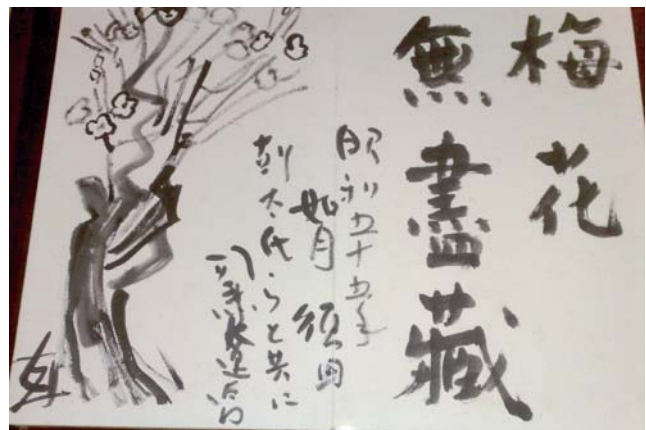 梅花
無盡藏
昭和五十五年
如月 須田
剋太氏らと共に
司馬遼